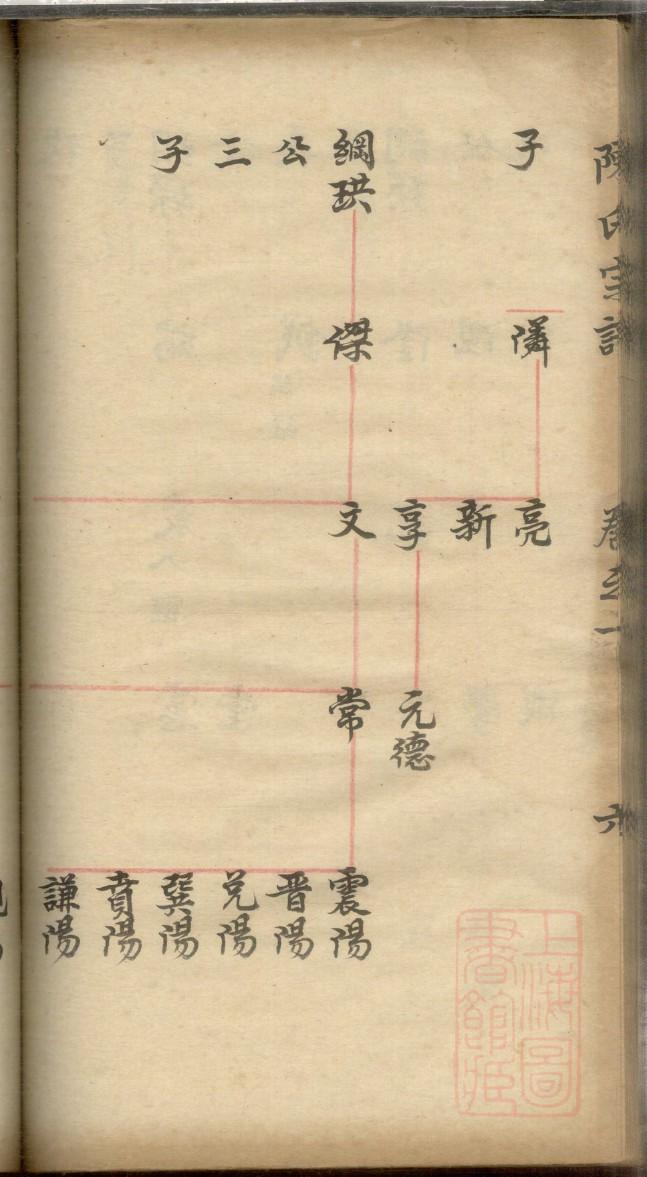 陳氏宗譜 卷之一 六
子
隣
亮
新
享
元德
綱珙
公
三
子
傑
文
常
震陽
晋陽
兌陽
巽陽
賁陽
謙陽
上海圖書館藏